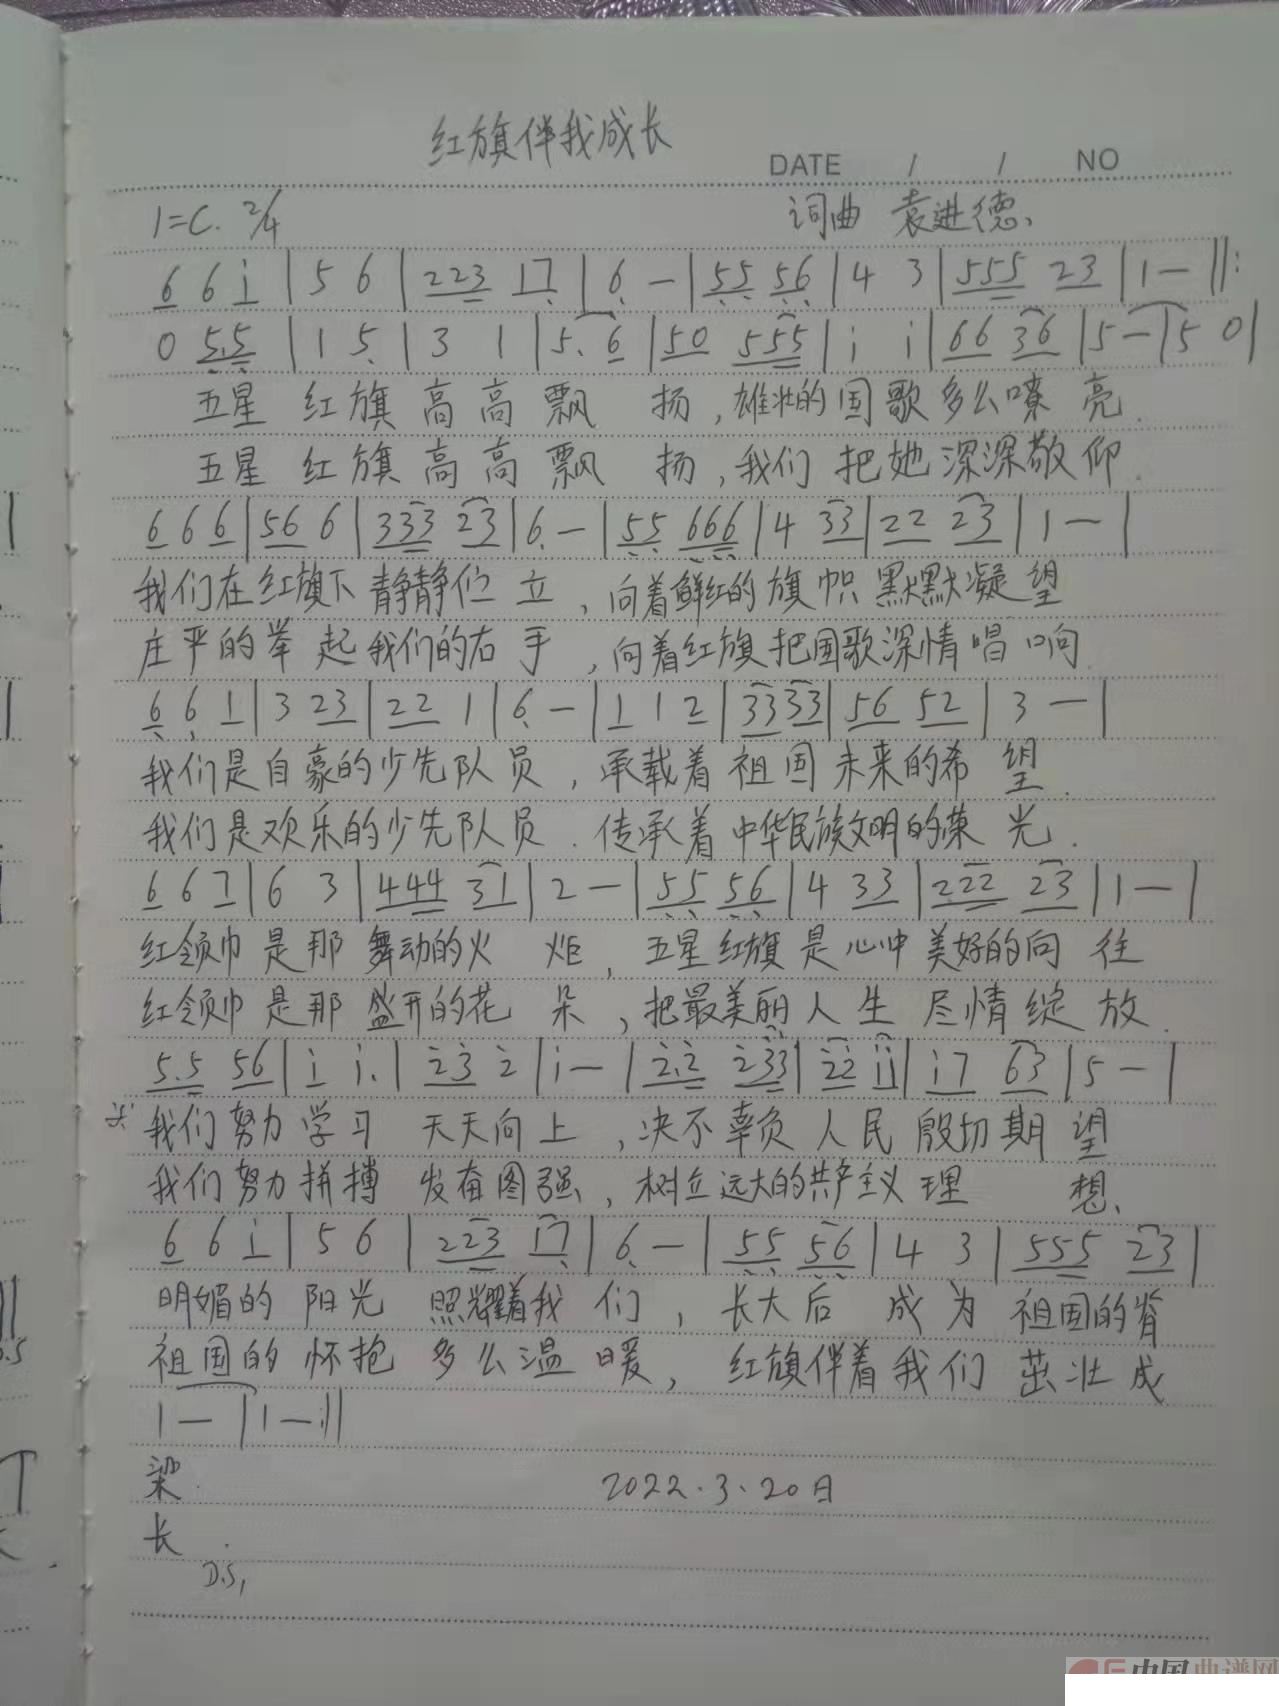 红旗伴我成长
DATE / / NO
1=C. 2/4 词曲 袁进德、
6 6 i | 5 6 | 223 17 | 6 — | 55 56 | 4 3 | 555 23 | 1 — ||:
0 5.5 | 1 5 | 3 1 | 5. 6 | 50 555 | i i | 66 36 | 5 — | 5 0 |
五星 红旗高高飘 扬,雄壮的国歌多么嘹 亮.
五星 红旗高高飘 扬,我们把她深深敬仰.
6 6 6 | 56 6 | 333 23 | 6 — | 55 666 | 4 33 | 22 23 | 1 — |
我们在红旗下静静伫立,向着鲜红的旗帜默默凝望
庄严的举起我们的右手,向着红旗把国歌深情唱响.
6 6 1 | 3 23 | 22 1 | 6 — | 1 1 2 | 33 33 | 56 52 | 3 — |
我们是自豪的少先队员,承载着祖国未来的希望.
我们是欢乐的少先队员.传承着中华民族文明的荣光.
6 6 7 | 6 3 | 444 31 | 2 — | 55 56 | 4 33 | 222 23 | 1 — |
红领巾是那舞动的火 炬,五星红旗是心中美好的向往
红领巾是那盛开的花 朵,把最美丽人生尽情绽放.
5.5 56 | i i. | 23 2 | i — | 2.2 233 | 22 ii | i7 63 | 5 — |
我们努力学习 天天向上,决不辜负人民殷切期望
我们努力拼搏 发奋图强,树立远大的共产主义理 想.
6 6 i | 5 6 | 223 17 | 6 — | 55 56 | 4 3 | 555 23 |
明媚的阳光 照耀着我们,长大后 成为祖国的脊
祖国的怀抱多么温暖,红旗伴着我们茁壮成
1 — | 1 — :||
梁. 2022.3.20日
长.
D.S,
中国曲谱网